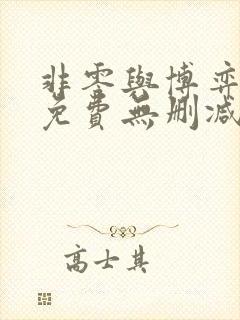 非零與博弈
免費無刪減
高士其